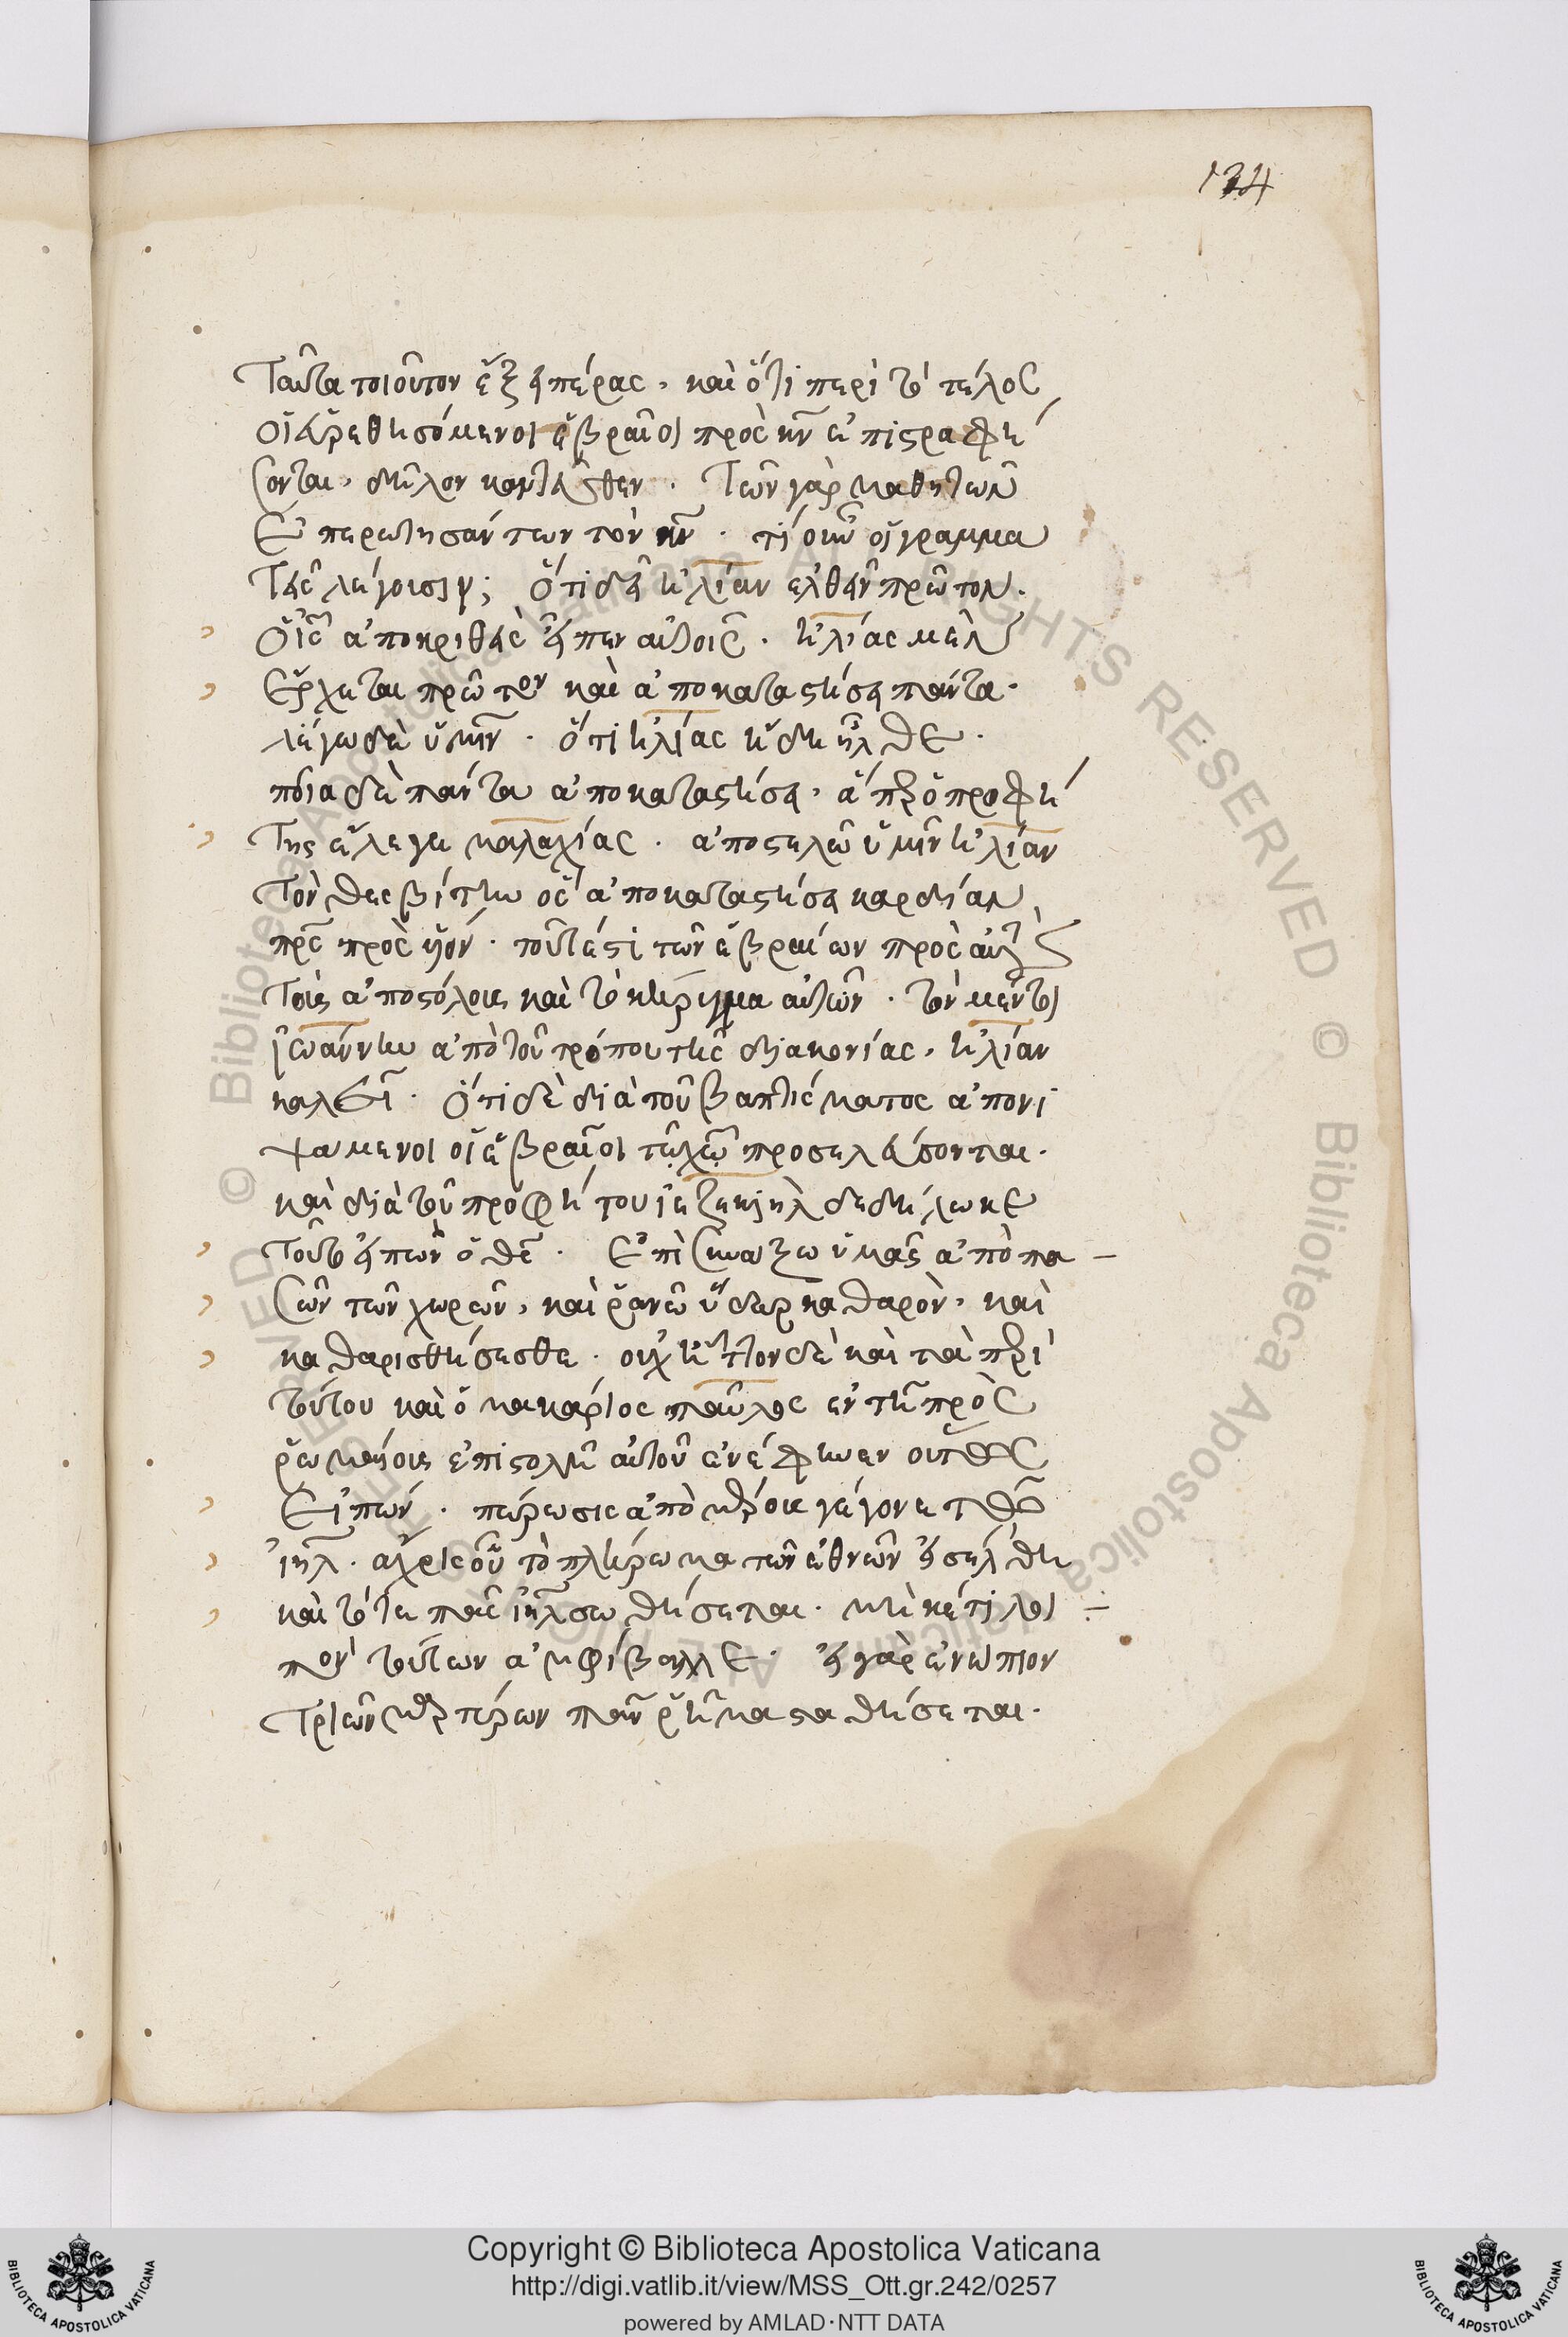 134
ταῦτα τοιοῦτον ἕξει πέρας, καὶ ὅτι περὶ τὸ τέλος
οἱ εὑρεθησόμενοι ἑβραῖοι πρὸς κν̄ ἐπιστραφή
σονται, δῆλον κἀντεῦθεν. Τῶν γὰρ μαθητῶν
ἐπερωτησάντων τὸν κν̄. τί οὖν οἱ γραμμα
τεῖς λέγουσιν; ὅτι δεῖ ἠλίαν ἐλθεῖν πρῶτον.
ὁ ις̄ ἀποκριθεὶς εἶπεν αὐτοῖς. ἠλίας μὲν
ἔρχεται πρῶτον καὶ ἀποκαταστήσει πάντα.
λέγω δὲ ὑμῖν. ὅτι ἠλίας ἤδη ἦλθε.
ποῖα δὲ πάντα ἀποκαταστήσει, ἅπερ ὁ προφή
της ἔλεγε μαλαχίας. ἀποστελῶ ὑμῖν ἠλίαν
τὸν θεσβίτην ὃς ἀποκαταστήσει καρδίαν
πρς̄ πρὸς υἱόν. τουτέστι τῶν ἑβραίων πρὸς αὐτοὺς
τοὺς ἀποστόλους καὶ τὸ κήρυγμα αὐτῶν. τὸν μέντοι
ἰωάννην ἀπὸ τοῦ τρόπου τῆς διακονίας, ἠλίαν
καλεῖ. ὅτι δὲ διὰ τοῦ βαπτίσματος ἀπονι
ψάμενοι οἱ ἑβραῖοι τῷ χω̄ προσελεύσονται.
καὶ διὰ τοῦ προφήτου ἰεζεκιὴλ δεδήλωκε
τοῦτο εἰπὼν ὁ θς̄. ἐπισυνάξω ὑμᾶς ἀπὸ πα
σῶν τῶν χωρῶν, καὶ ῥανῶ ὕδωρ καθαρὸν, καὶ
καθαρισθήσεσθε. οὐχ ἧττον δὲ καὶ τὰ περὶ
τούτου καὶ ὁ μακάριος παῦλος ἐν τῇ πρὸς
ῥωμαίους ἐπιστολῇ αὐτοῦ ἐνέφηνεν οὕτως
εἰπών. πώρωσις ἀπὸ μέρους γέγονε τῷ
ιη̄λ. ἄχρις οὗ τὸ πλήρωμα τῶν ἐθνῶν εἰσέλθη
καὶ τότε πᾶς ιη̄λ σωθήσεται. μηκέτι λοι
πὸν τούτων ἀμφίβαλλε. εἰ γὰρ ἐνώπιον
τριῶν μαρτύρων πᾶν ῥῆμα σταθήσεται.
Copyright © Biblioteca Apostolica Vaticana
http://digi.vatlib.it/view/MSS_Ott.gr.242/0257
powered by AMLAD·NTT DATA